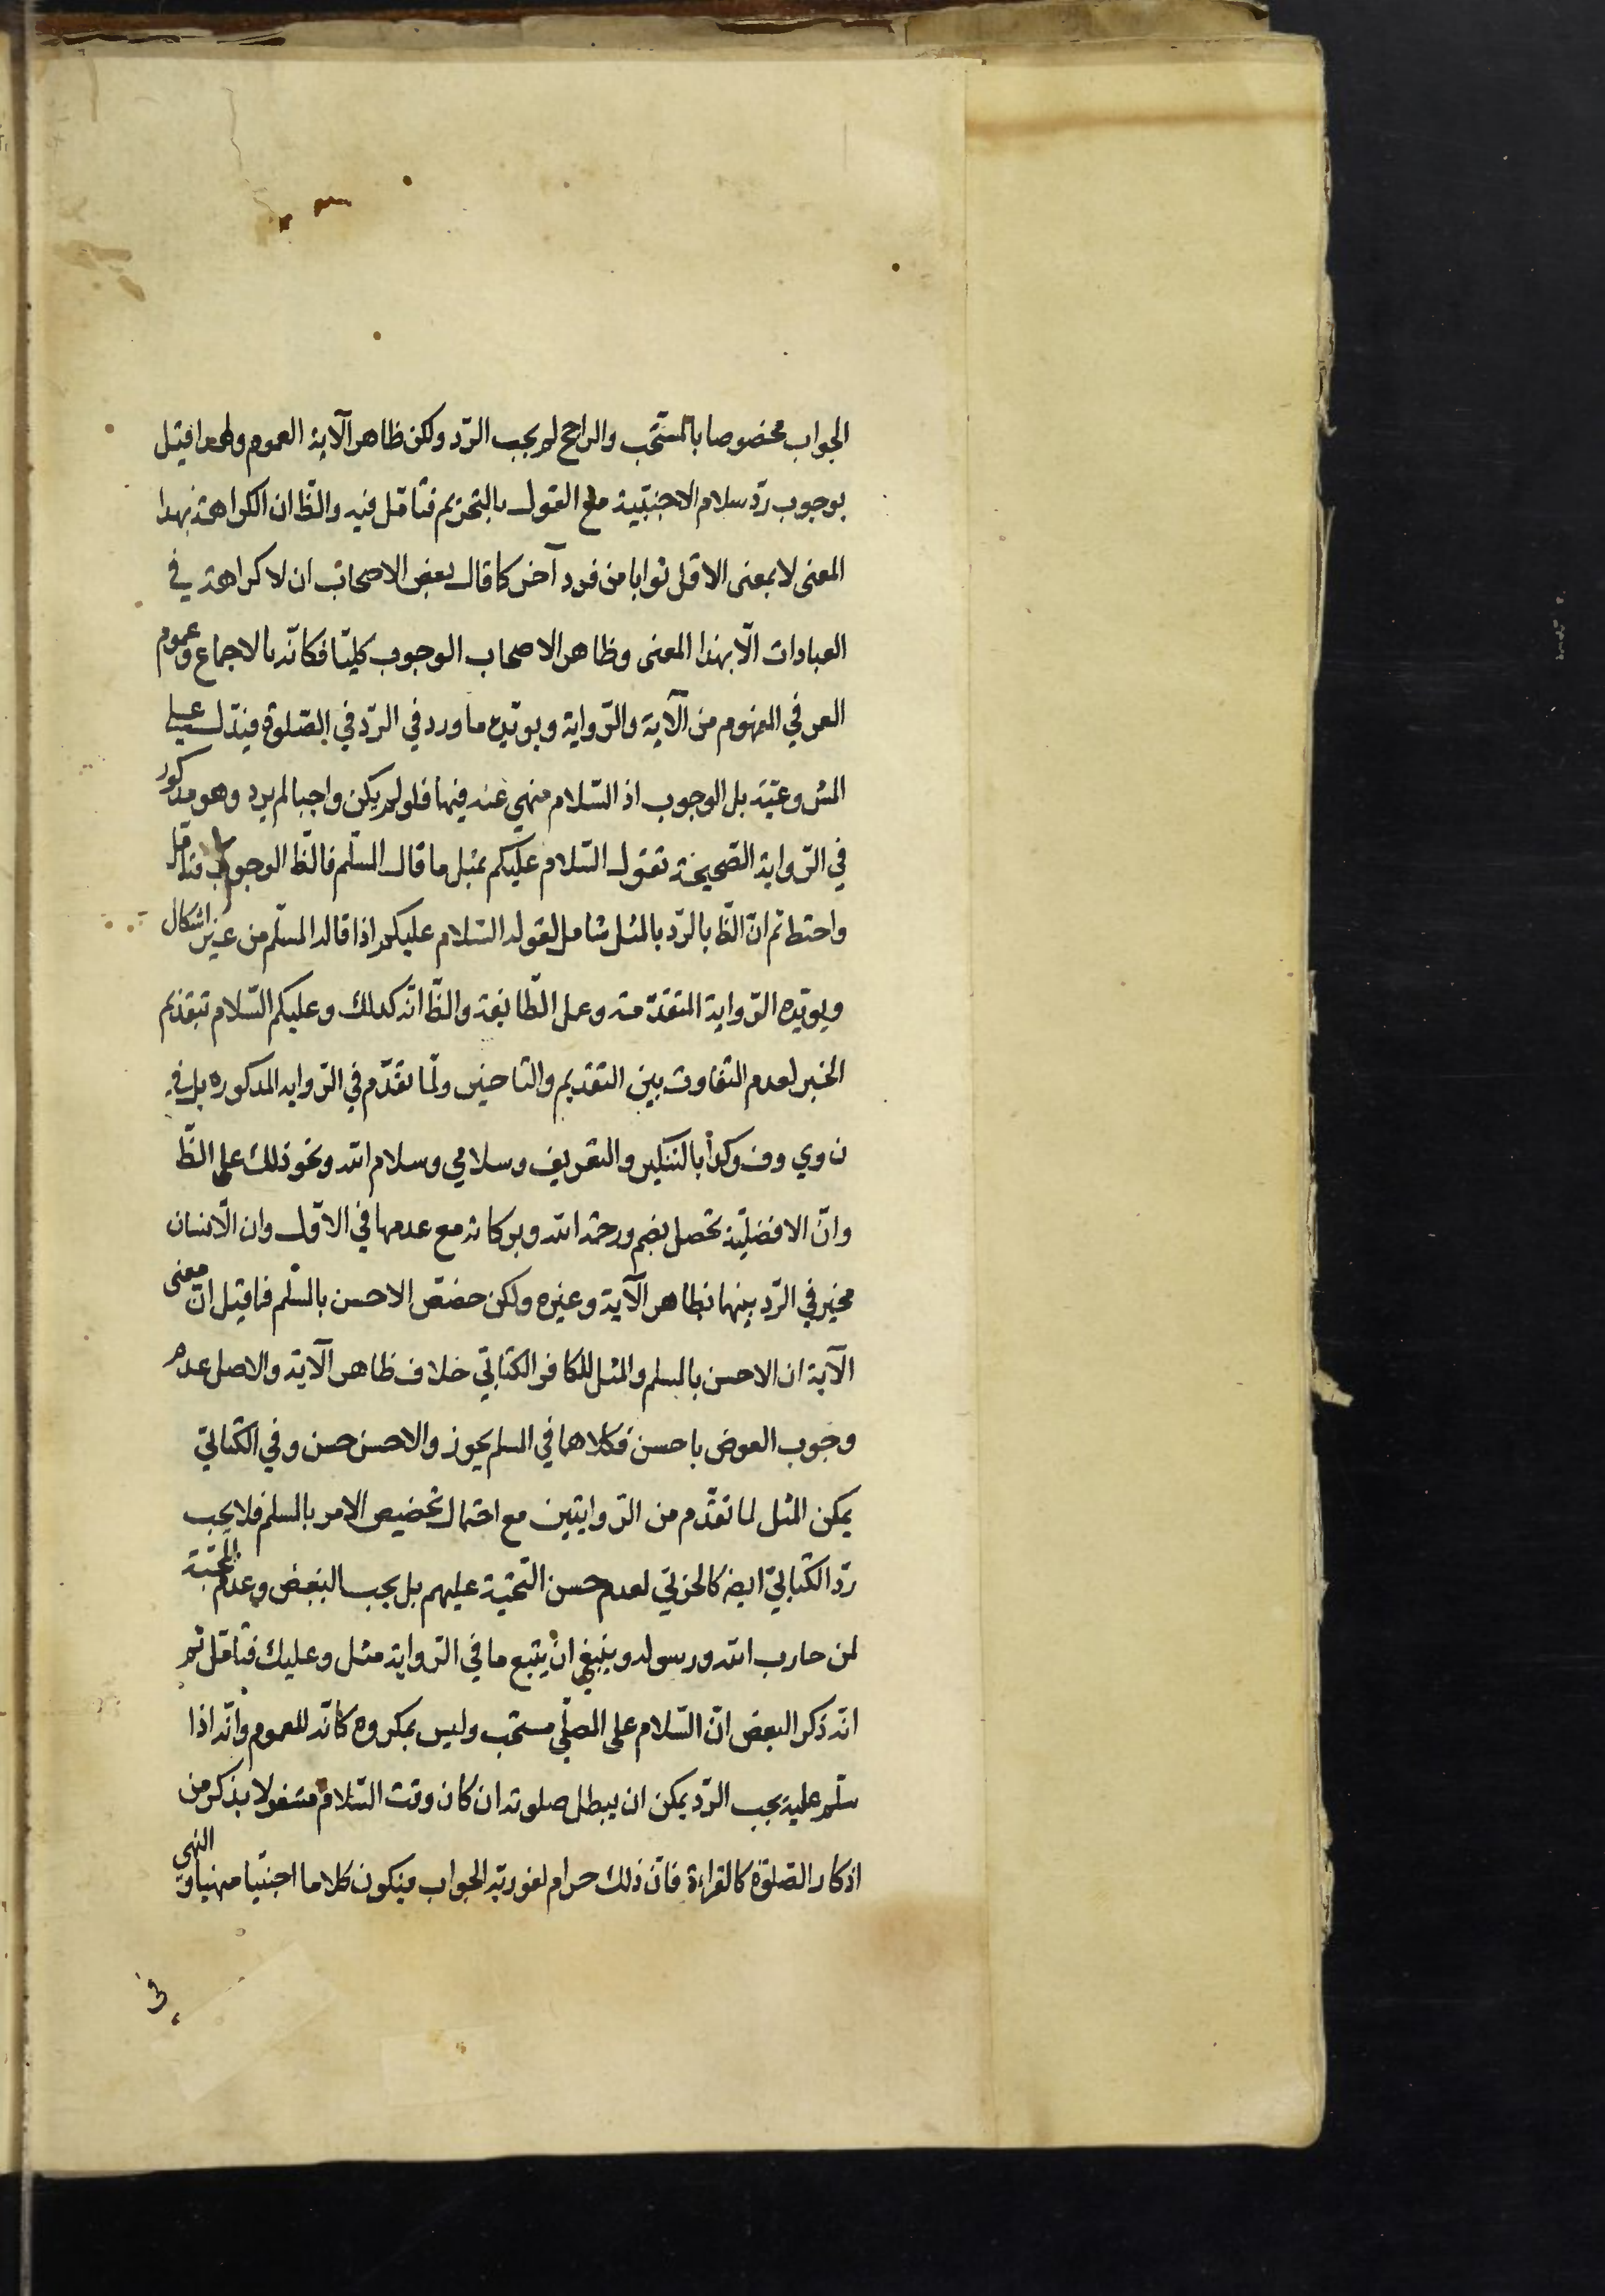 الجواب مخصوصا بالمستحب والراجح لم يجب الرّد ولكن ظاهر الآية العموم ولهذا قيل
بوجوب ردّ سلام الاجنبيّة مع القول بالتحريم فتأمّل فيه والظّ ان الكراهة بهذا
المعنى لا بمعنى الاقل ثوابا من فرد آخر كما قال بعض الاصحاب ان لا كراهة في
العبادات الّا بهذا المعنى وظاهر الاصحاب الوجوب كليّا فكانّه بالاجماع وعموم
العرفي المفهوم من الآية والرّواية ويويّده ما ورد في الرّد في الصّلوة فيدّل على
المشروعيّة بل الوجوب اذ السّلام منهي عنه فيها فلو لم يكن واجبا لم يرد وهو مذكور
في الرّواية الصّحيحة تقول السّلام عليكم بمثل ما قال المسلّم فالظّ الوجوب فتامّل
واحتط ثم انّ الظّ بالرّد بالمثل شامل لقوله السّلام عليكم اذا قاله المسلّم من غير اشكال
ويويّده الرّواية المتقدّمة وعمل الطّائفة والظّ انّه كذلك وعليكم السّلام بتقديم
الخبر لعدم التفاوت بين التقديم والتاخير ولمّا تقدّم في الرّواية المذكوره بل في
وكذا بالتنكير والتعريف وسلامي وسلام الله ونحو ذلك على الظّ
وانّ الافضليّة تحصل بضم ورحمة الله وبركاته مع عدمها في الاوّل وان الانسان
مخير في الرّد بينهما لظاهر الآية وغيره ولكن خصّص الاحسن بالمسلّم فما قيل ان معنى
الآية ان الاحسن بالمسلم والمثل للكافر الكتابيّ خلاف ظاهر الآية والاصل عدم
وجوب العوض باحسن فكلاهما في المسلم يجوز والاحسن حسن وفي الكتابيّ
يمكن المثل لما تقدّم من الرّوايتين مع احتمال تخصيص الامر بالمسلم فلا يجب
ردّ الكتابيّ ايضا كالحربيّ لعدم حسن التّحيّة عليهم بل يجب البغض وعدم المحبّة
لمن حارب الله ورسوله وينبغي ان يتّبع ما في الرّواية مثل وعليك فتأمّل ثم
انّه ذكر البعض انّ السّلام على المصلّي مستحب وليس بمكروه كانّه للعموم وانّه اذا
سلّم عليه يجب الرّد يمكن ان يبطل صلوته ان كان وقت السّلام مشغولا بذكر من
اذكار الصّلوة كالقراءة فانّ ذلك حرام لفوريّة الجواب فيكون كلاما اجنبيّا منهيا والنهي
في